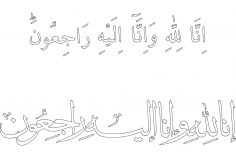 اِنَّا لِلّٰهِ وَاِنَّآ اِلَيْهِ رَاجِعُونَ
انا لله وانا اليه راجعون